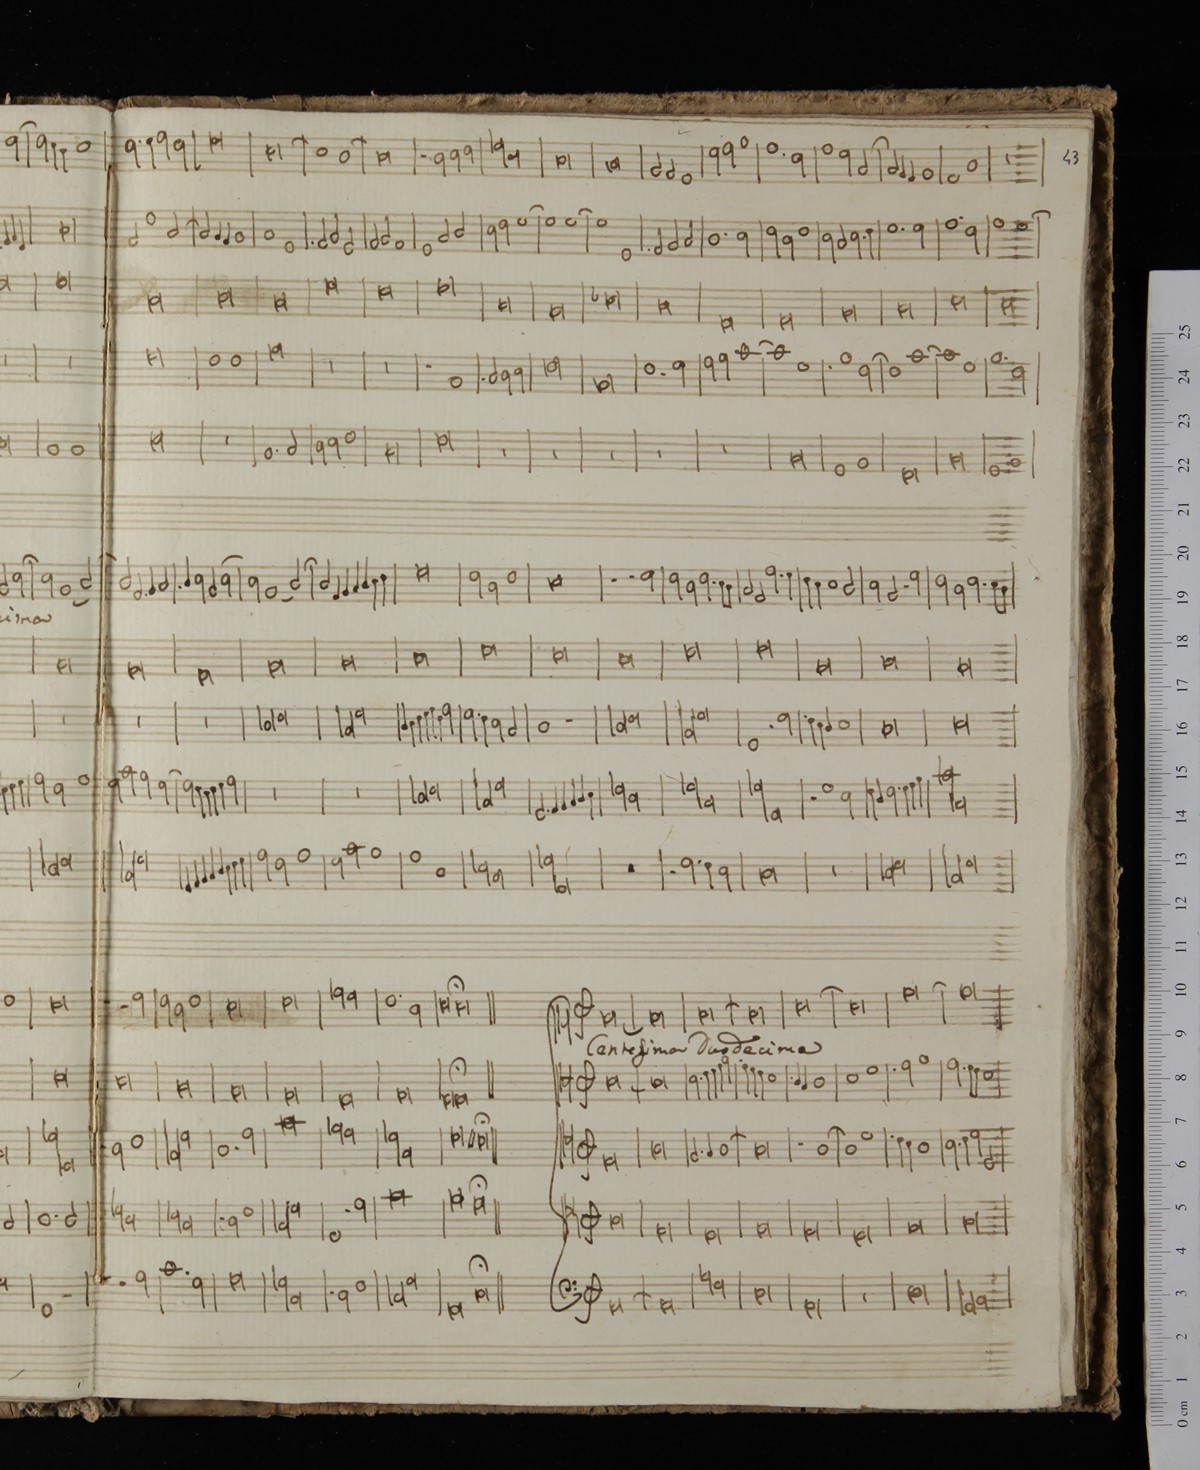 43
cima
Centesima Duodecima
25
24
23
22
21
20
19
18
17
16
15
14
13
12
11
10
9
8
7
6
5
4
3
2
1
0 cm